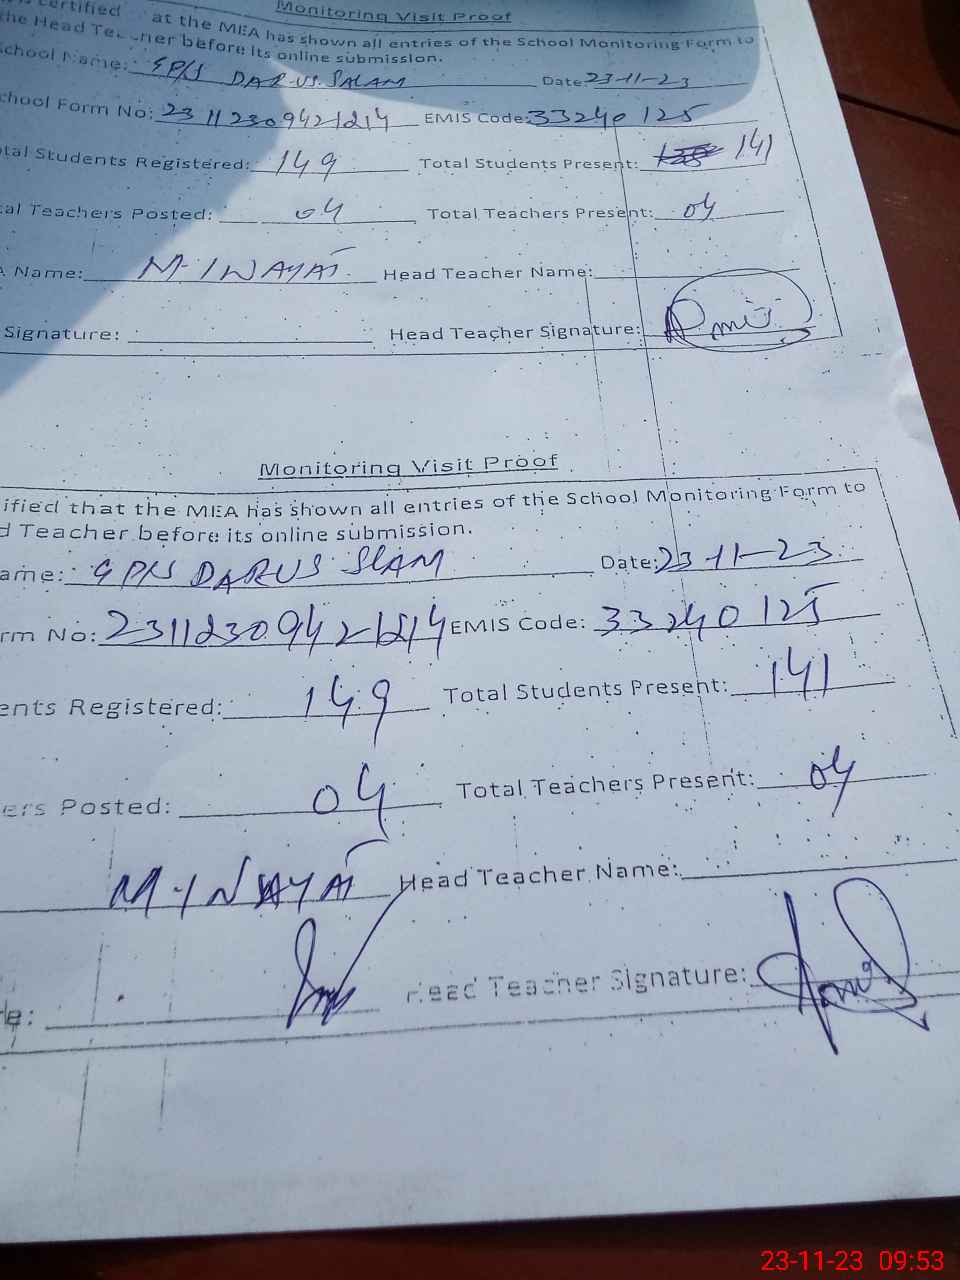 Monitoring Visit Proof
certified at the MEA has shown all entries of the School Monitoring Form to
the Head Teacher before its online submission.
School Name: GPS DAR-US-SALAM Date: 23-11-23
chool Form No: 23112309421214 EMIS Code: 33240125
tal Students Registered: 149 Total Students Present: 141
al Teachers Posted: 04 Total Teachers Present: 04
A Name: M-INAYAT Head Teacher Name:
Signature: Head Teacher Signature:
Monitoring Visit Proof
ified that the MEA has shown all entries of the School Monitoring Form to
d Teacher before its online submission.
ame: GPS DARUS SLAM Date: 23-11-23
rm No: 23112309421214 EMIS Code: 33240125
ents Registered: 149 Total Students Present: 141
ers Posted: 04 Total Teachers Present: 04
M-INAYAT Head Teacher Name:
e: Head Teacher Signature:
23-11-23 09:53